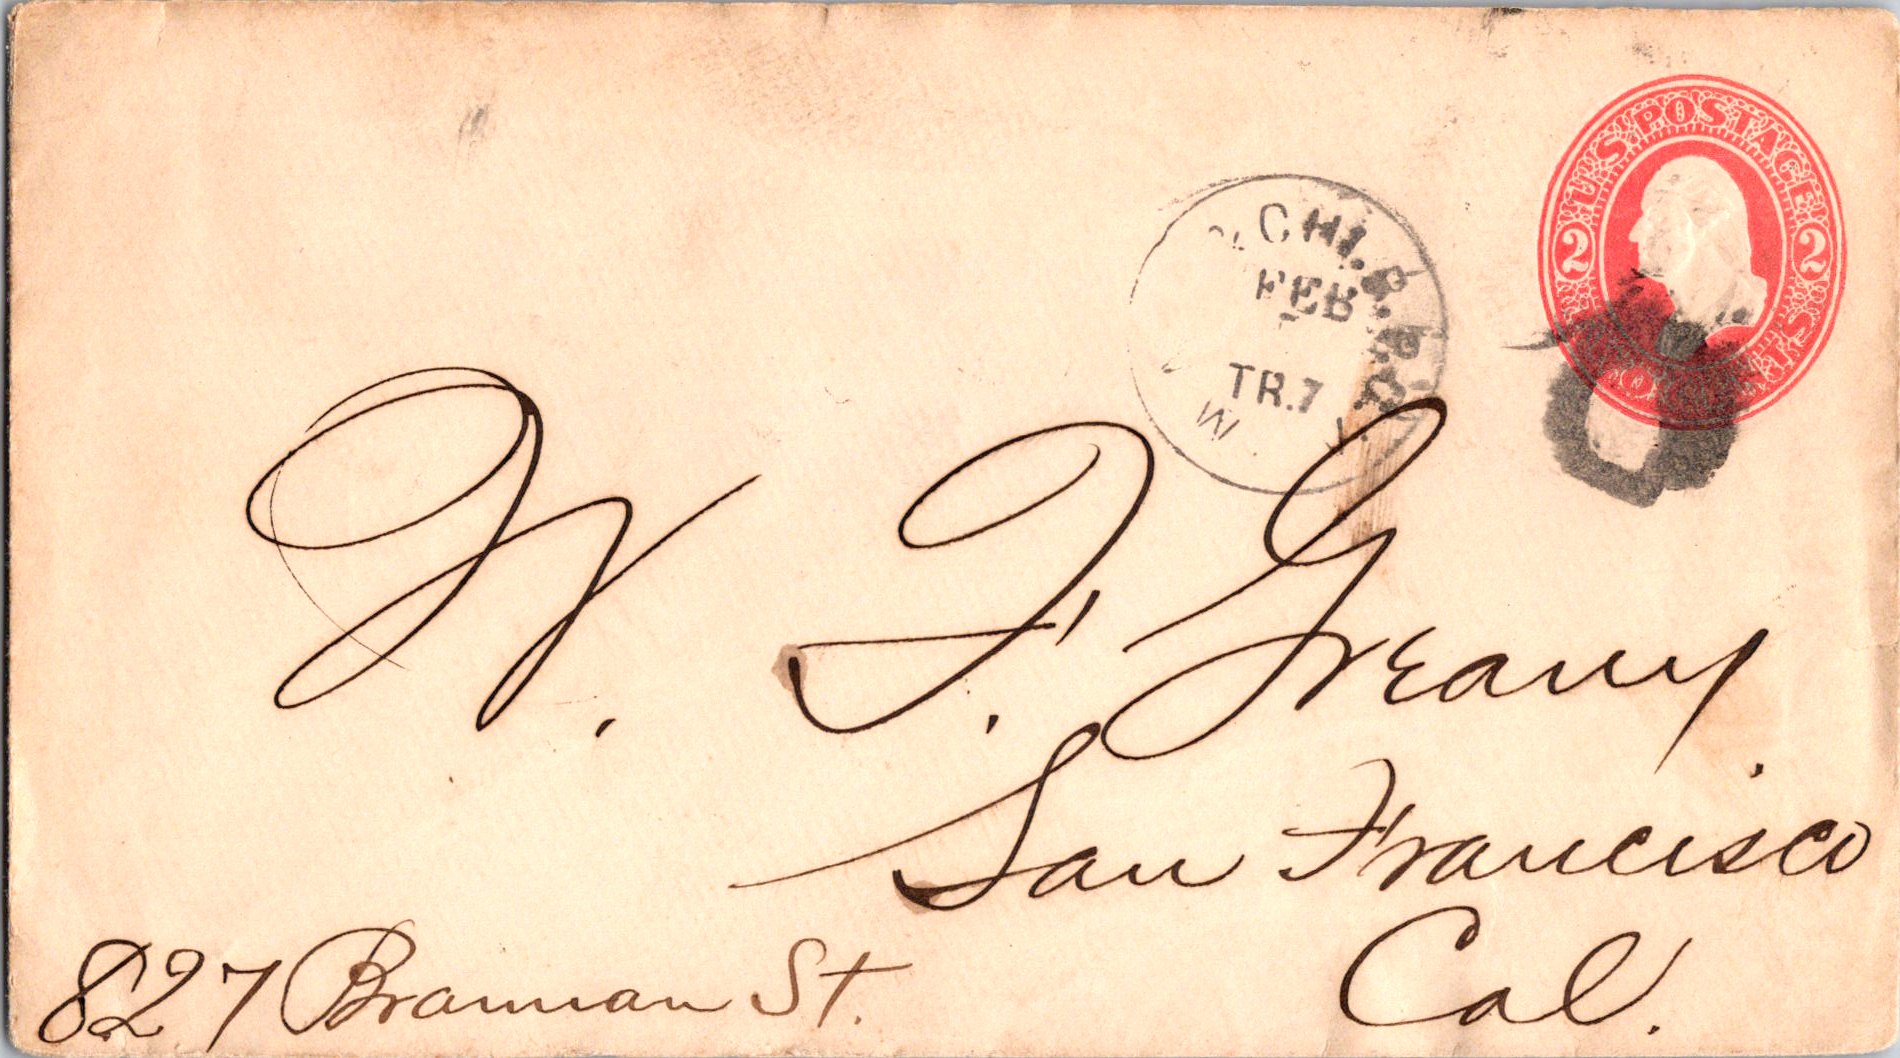 U.S. POSTAGE
2 2
CHI. R.P.O.
FEB
TR.7
W. F. Greany
San Francisco
Cal.
827 Brannan St.